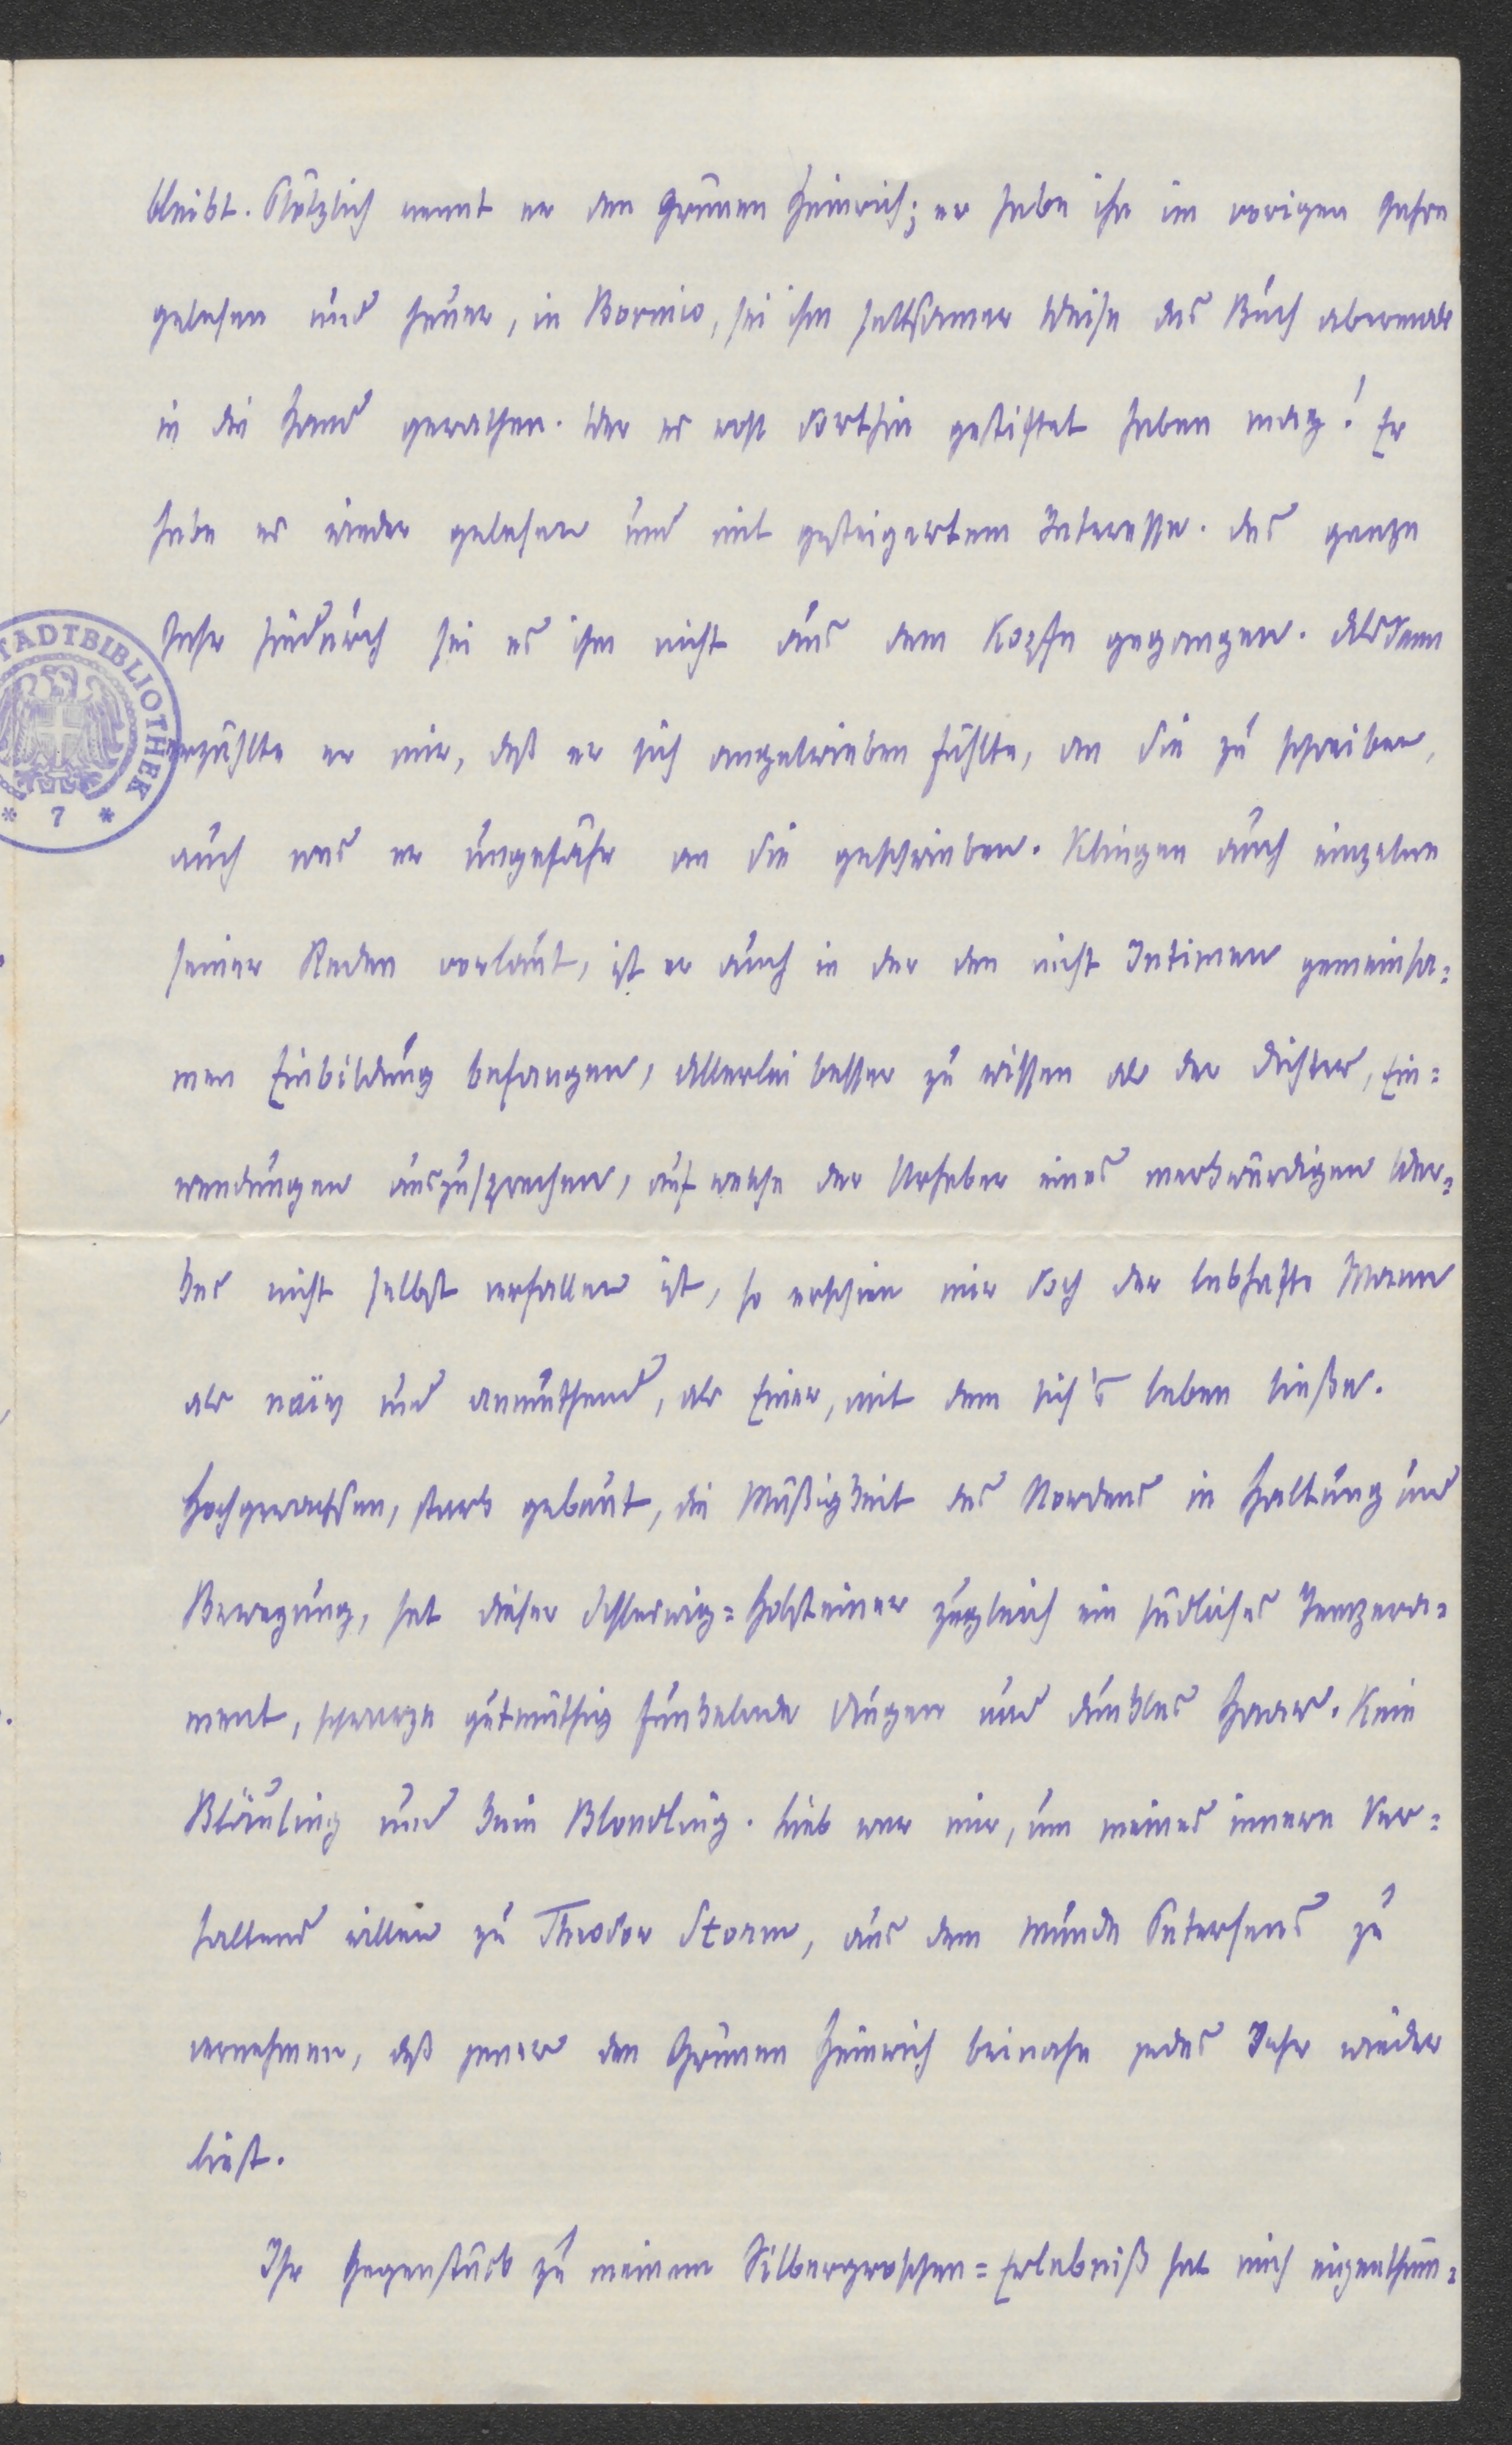 bleibt. Plötzlich nennt er den Grünen Heinrich; er habe ihn im vorigen Jahre
gelesen und heuer, in Bormio, sei ihm seltsamer Weise das Buch abermals
in die Hand gerathen. Wer es wol dorthin gestiftet haben mag! Er
habe es wieder gelesen und mit gesteigertem Interesse. Das ganze
Jahr hindurch sei es ihm nicht aus dem Kopfe gegangen. Alsdann
erzählte er mir, daß er sich angetrieben fühlte, an Sie zu schreiben,
auch was er ungefähr an Sie geschrieben. Klingen auch einzelne
seiner Reden vorlaut, ist er auch in der den nicht Intimen gemeinsa=
men Einbildung befangen, Allerlei besser zu wissen als der Dichter, Ein=
wendungen auszusprechen, auf welche der Urheber eines merkwürdigen Wer=
kes nicht selbst verfallen ist, so erschien mir doch der lebhafte Mann
als naïv und anmuthend, als Einer, mit dem sich's leben ließe.
Hochgewachsen, stark gebaut, die Mäßigkeit des Nordens in Haltung und
Bewegung, hat dieser Schleswig=Holsteiner zugleich ein südliches Tempera=
ment, schwarze gutmüthig funkelnde Augen und dunkles Haar. Kein
Bläuling und kein Blondling. Lieb war mir, um meines innern Ver=
haltens willen zu Theodor Storm, aus dem Munde Petersens zu
vernehmen, daß jener den Grünen Heinrich beinahe jedes Jahr wieder
liest.
Ihr Gegenstück zu meinem Silbergroschen=Erlebniß hat mich eigenthüm=
STADTBIBLIOTHEK
* 7 *